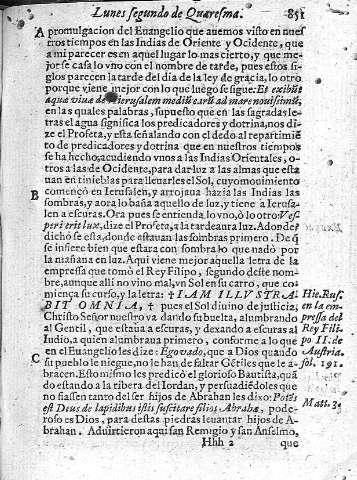 Lunes segundo de Quaresma. 851
A promulgacion del Euangelio que auemos visto en nues
tros tiempos en las Indias de Oriente y Ocidente, que
a mi parecer es en aquel lugar lo mas cierto, y que me-
jor se casa lo vno con el nombre de tarde, pues estos si-
glos parecen la tarde del dia de la ley de gracia, lo otro
porque viene mejor con lo que luego se sigue. Et exibūt
aquæ viuæ de Hierusalem medium earū ad mare nouissimū,
en las quales palabras, supuesto que en las sagradas le-
tras el agua significa los predicadores y dotrina, nos di-
ze el Profeta, y esta señalando con el dedo al repartimiē
to de predicadores y dotrina que en nuestros tiempos
se ha hecho, acudiendo vnos a las Indias Orientales, o-
tros a las de Occidente, para dar luz a las almas que esta
uan en tinieblas para lleuarles el Sol, cuyo mouimiento
B començò en Ierusalen, y arrojaua hazia las Indias las
sombras, y aora lo baña aquello de luz, y tiene a Ierusa-
len a escuras. Ora pues se entienda lo vno, ò lo otro Ves
peri erit lux, dize el Profeta, a la tarde aura luz. Adonde
dicho se està, donde estauan las sombras primero. De q̄
se infiere bien que estara con sombra lo que nadò por
la mañana en luz. Aqui viene mejor aquella letra de la
empressa que tomò el Rey Filipo, segundo deste nom-
bre, aunque alli no vino mal, vn Sol en su carro, que co-
miença su curso, y la letra: † IAM ILLVSTRA-
BIT OMNIA, † pues el Sol diuino de justicia,
Christo Señor nuestro va dando su buelta, alumbrando
al Gentil, que estaua a escuras, y dexando a escuras al
Indio, a quien alumbraua primero, conforme a lo que
en el Euangelio les dize: Ego vado, que a Dios quando
C su pueblo le niegue, no le han de faltar Gētiles que le a-
bracen. Esto mismo les predicò el glorioso Bautista, quā
do estando a la ribera del Iordan, y persuadiēdoles que
no fiassen tanto del ser hijos de Abrahan les dixo: Potēs
est Deus de lapidibus istis suscitare filios Abrahæ, pode-
roso es Dios, para destas piedras leuantar hijos de A-
brahan. Aduirtieron aqui san Remigio y san Anselmo,
Hhh 2 que
Hie. Rus.
en la com
pressa del
Rey Filip
po II. de
Austria.
fol. 191.
Matt. 3.